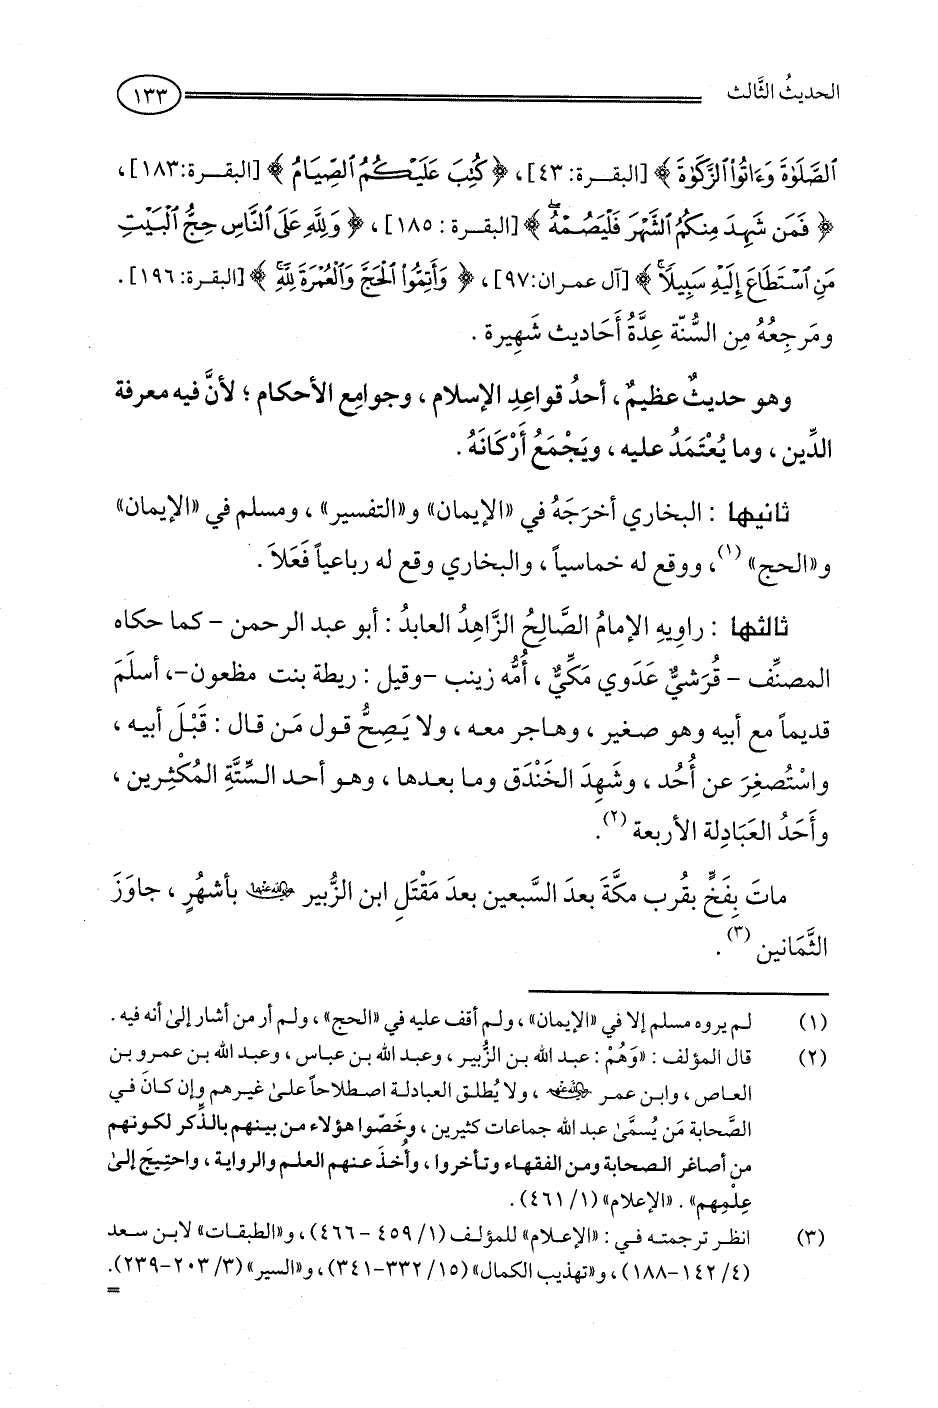 الحديثُ الثَّالث ١٣٣
ٱلصَّلَوٰةَ وَءَاتُوا۟ ٱلزَّكَوٰةَ ﴾ [البقـرة: ٤٣] ، ﴿ كُتِبَ عَلَيْكُمُ ٱلصِّيَامُ ﴾ [البقـرة:١٨٣] ،
﴿ فَمَن شَهِدَ مِنكُمُ ٱلشَّهْرَ فَلْيَصُمْهُ ۖ ﴾ [البقـرة : ١٨٥] ، ﴿ وَلِلَّهِ عَلَى ٱلنَّاسِ حِجُّ ٱلْبَيْتِ
مَنِ ٱسْتَطَاعَ إِلَيْهِ سَبِيلًا ۚ ﴾ [آل عمران:٩٧] ، ﴿ وَأَتِمُّوا۟ ٱلْحَجَّ وَٱلْعُمْرَةَ لِلَّهِ ۚ ﴾ [البقرة: ١٩٦] .
ومَرجِعُهُ مِن السُّنّة عِدَّةُ أَحَاديث شَهِيرة .
وهو حديثٌ عظيمٌ ، أحدُ قواعِدِ الإسلام ، وجوامِع الأحكام ؛ لأنَّ فيه معرفة
الدِّين ، وما يُعْتَمَدُ عليه ، ويَجْمَعُ أَرْكَانَهُ .
ثانيها : البخاري أخرَجَهُ في «الإيمان» و«التفسير» ، ومسلم في «الإيمان»
و«الحج» (١)، ووقع له خماسياً ، والبخاري وقع له رباعياً فَعَلاَ .
ثالثها : راويهِ الإمامُ الصَّالِحُ الزَّاهِدُ العابدُ : أبو عبد الرحمن - كما حكاه
المصنِّف - قُرَشيٌّ عَدَوي مَكِّيٌّ ، أُمُّه زينب -وقيل : ريطة بنت مظعون-، أسلَمَ
قديماً مع أبيه وهو صغير ، وهاجر معه ، ولا يَصِحُّ قول مَن قال : قَبْلَ أبيه ،
واسْتُصغِرَ عن أُحُد ، وشَهِدَ الخَنْدَق وما بعدها ، وهو أحد السِّتَّةِ المُكْثِرين ،
وأَحَدُ العَبَادِلة الأربعة (٢).
ماتَ بِفَخٍّ بقُرب مكَّةَ بعدَ السَّبعين بعدَ مَقْتَلِ ابن الزُّبير رضي الله عنهما بأشهُرٍ ، جاوَزَ
الثَّمَانين (٣) .
(١) لم يروه مسلم إلا في «الإيمان» ، ولم أقف عليه في «الحج» ، ولم أر من أشار إلىٰ أنه فيه .
(٢) قال المؤلف : «وَهُمْ : عبد الله بن الزُّبير ، وعبد الله بن عباس ، وعبد الله بن عمرو بن
العاص ، وابن عمر رضي الله عنهم ، ولا يُطلق العبادلة اصطلاحاً علىٰ غيرهم وإن كانَ في
الصَّحابة مَن يُسمَّىٰ عبد الله جماعات كثيرين ، وخَصّوا هؤلاء من بينهم بالذِّكر لكونهم
من أصاغر الصحابة ومن الفقهاء وتأخروا ، وأُخذَ عنهم العلم والرواية ، واحتِيجَ إلىٰ
عِلْمِهم» . «الإعلام» (١/ ٤٦١) .
(٣) انظر ترجمته في : «الإعلام» للمؤلف (١/ ٤٥٩ - ٤٦٦) ، و«الطبقات» لابن سعد
(٤/ ١٤٢-١٨٨) ، و«تهذيب الكمال» (١٥/ ٣٣٢-٣٤١)، و«السير» (٣/ ٢٠٣-٢٣٩).
=